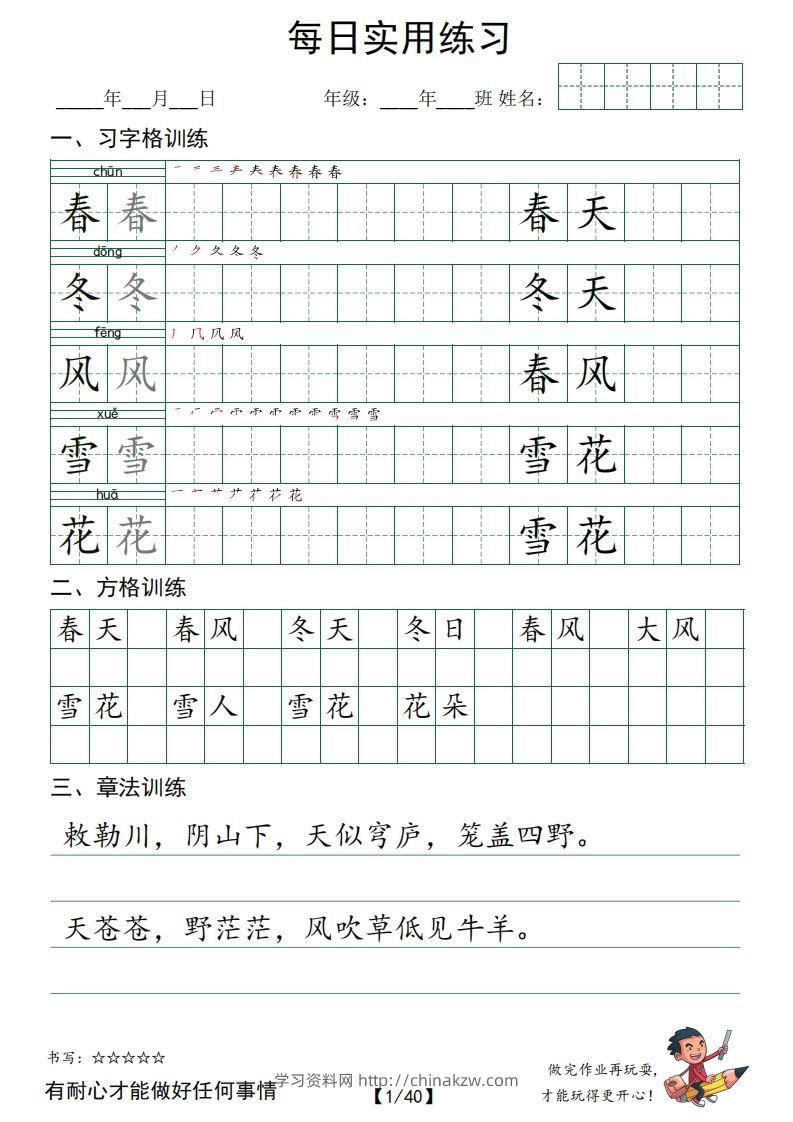 每日实用练习
_____年___月___日 年级：____年____班 姓名：
一、习字格训练
chūn
春 春 春 天
dōng
冬 冬 冬 天
fēng
风 风 春 风
xuě
雪 雪 雪 花
huā
花 花 雪 花
二、方格训练
春天 春风 冬天 冬日 春风 大风
雪花 雪人 雪花 花朵
三、章法训练
敕勒川，阴山下，天似穹庐，笼盖四野。
天苍苍，野茫茫，风吹草低见牛羊。
书写：☆☆☆☆☆
做完作业再玩耍，
才能玩得更开心！
有耐心才能做好任何事情
学习资料网 http://chinakzw.com
【1/40】